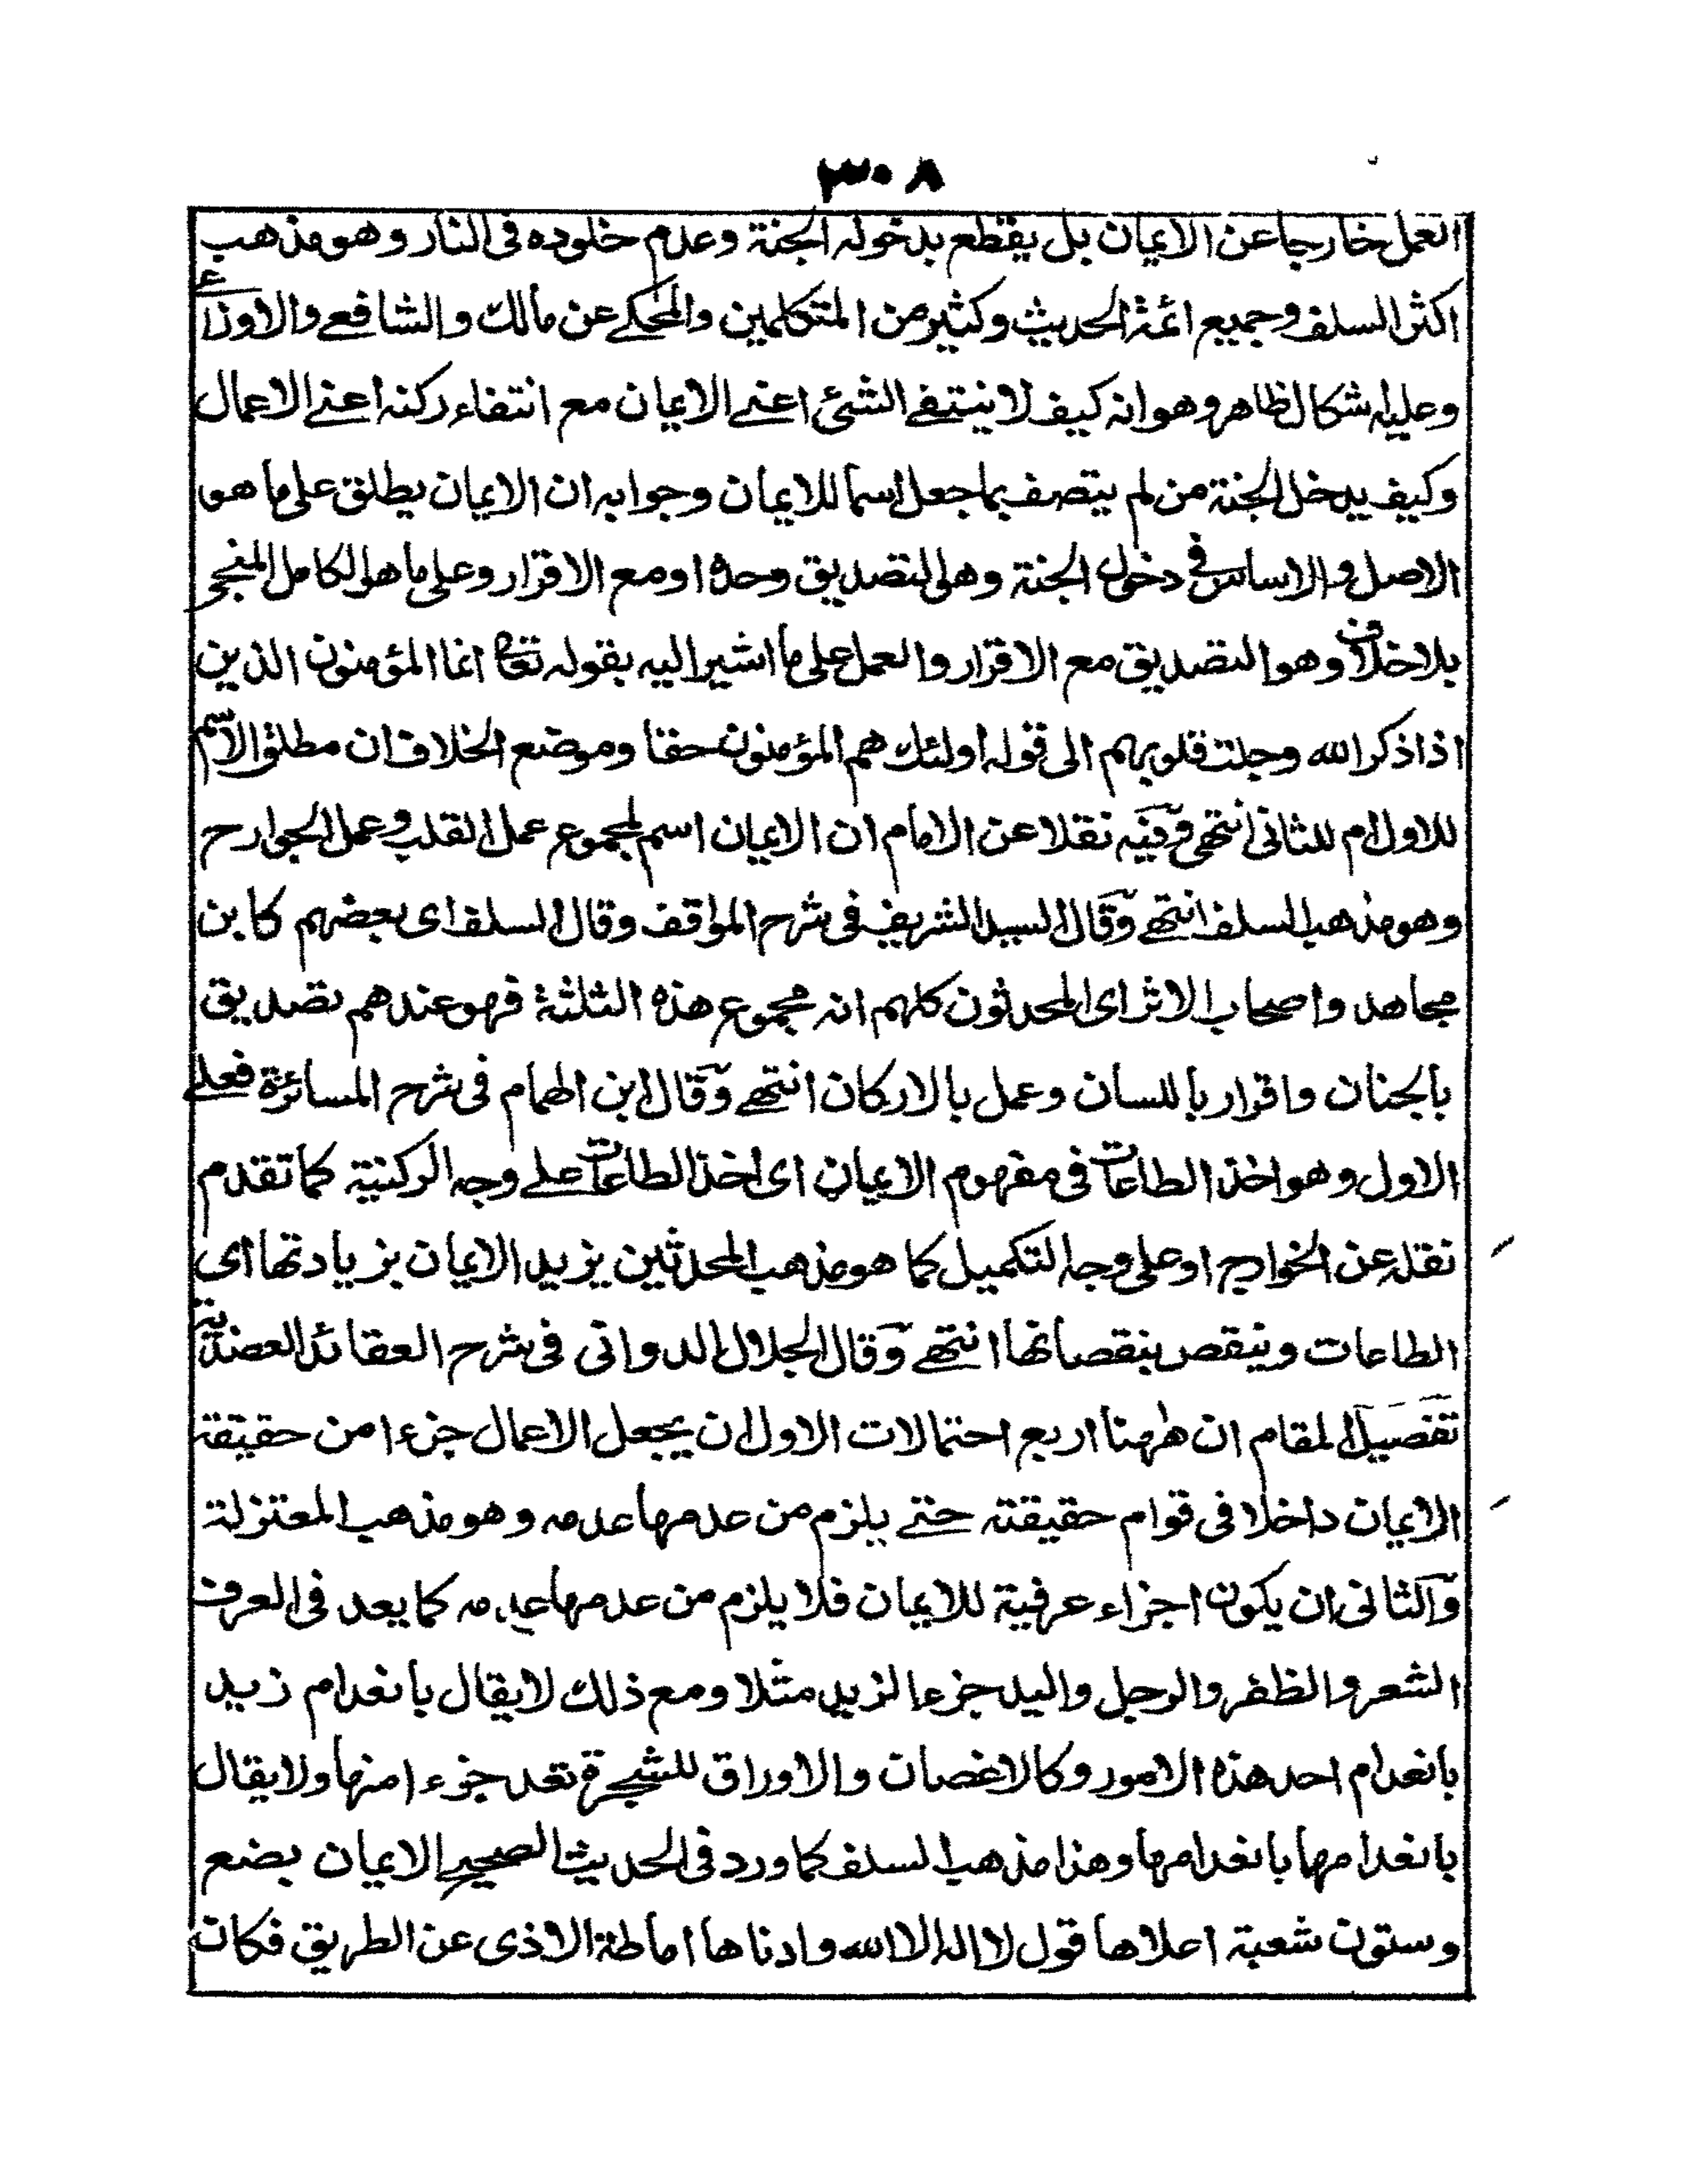 ٣٠٨
العمل خارجا عن الايمان بل يقطع بدخوله الجنة وعدم خلوده فى النار وهو مذهب
اكثر السلف وجميع ائمة الحديث وكثير من المتكلمين والمحكے عن مالك والشافعے والاوزاعے
وعليه اشكال ظاهر وهو انه كيف لا ينتفے الشئ اعنے الايمان مع انتفاء ركنه اعنے الاعمال
وكيف يدخل الجنة من لم يتصف بما جعل اسما للايمان وجوابه ان الايمان يطلق على ما هو
الاصل والاساس فى دخول الجنة وهو التصديق وحده او مع الاقرار وعلى ما هو الكامل المنجى
بلا خلاف وهو التصديق مع الاقرار والعمل على ما اشير اليه بقوله تعالى انما المؤمنون الذين
اذا ذكر الله وجلت قلوبهم الى قوله اولئك هم المؤمنون حقا وموضع الخلاف ان مطلق الاسم
للاول ام للثانى انتهى وفيه نقلا عن الامام ان الايمان اسم لمجموع عمل القلب وعمل الجوارح
وهو مذهب السلف انتهے وقال السيد الشريف فى شرح المواقف وقال السلف اى بعضهم كابن
مجاهد واصحاب الاثر اى المحدثون كلهم انه مجموع هذه الثلثة فهو عندهم تصديق
بالجنان واقرار باللسان وعمل بالاركان انتهے وقال ابن الهمام فى شرح المسائرة فعلے
الاول وهو اخذ الطاعات فى مفهوم الايمان اى اخذ الطاعات علے وجه الركنية كما تقدم
نقله عن الخوارج او على وجه التكميل كما هو مذهب المحدثين يزيد الايمان بزيادتها اى
الطاعات وينقص بنقصانها انتهے وقال الجلال الدوانى فى شرح العقائد العضدية
تفصيل المقام ان ههنا اربع احتمالات الاول ان يجعل الاعمال جزءا من حقيقة
الايمان داخلا فى قوام حقيقته حتے يلزم من عدمها عدمه وهو مذهب المعتزلة
والثانى ان يكون اجزاء عرفية للايمان فلا يلزم من عدمها عدمه كما يعد فى العرف
الشعر والظفر والرجل واليد جزءا لزيد مثلا ومع ذلك لا يقال بانعدام زيد
بانعدام احد هذه الامور وكالاغصان والاوراق للشجرة تعد جزءا منها ولا يقال
بانعدامها بانعدامها وهذا مذهب السلف كما ورد فى الحديث الصحيح الايمان بضع
وستون شعبة اعلاها قول لا اله الا الله وادناها اماطة الاذى عن الطريق فكان